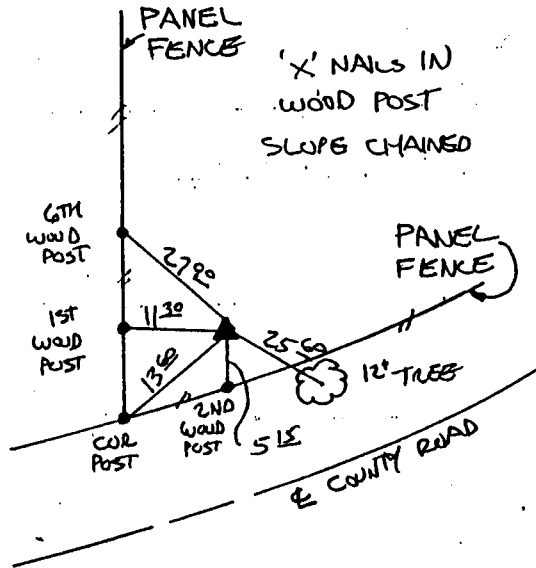 PANEL
FENCE
'X' NAILS IN
WOOD POST
SLOPE CHAINED
6TH
WOOD
POST
27 90
PANEL
FENCE
1ST
WOOD
POST
11 30
25 60
13 60
12" TREE
2ND
WOOD
POST
5 15
COR
POST
℄ COUNTY ROAD